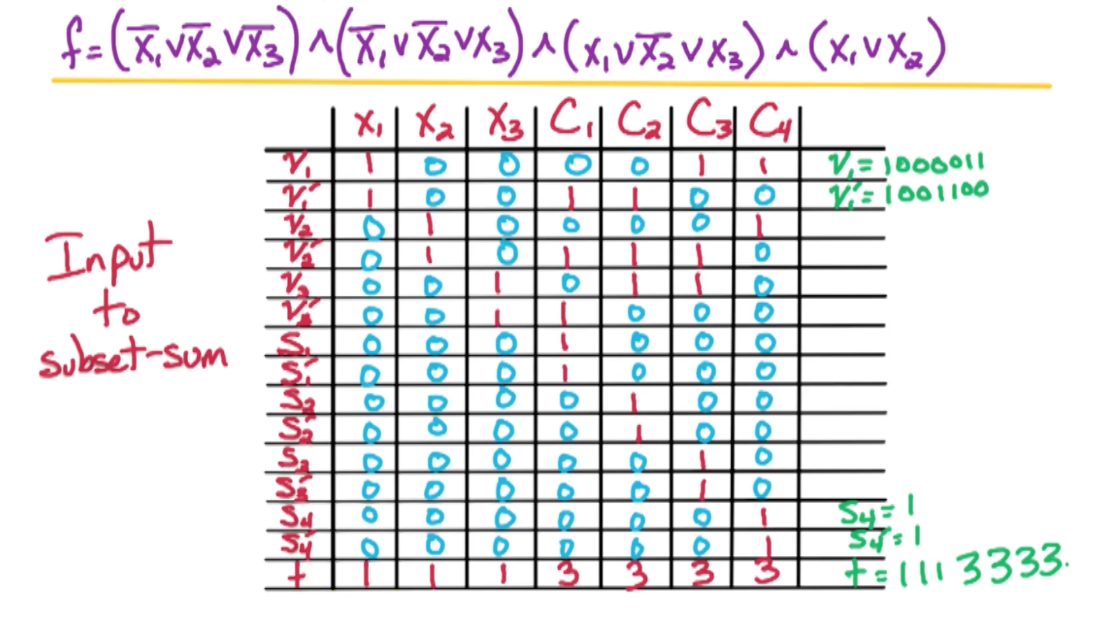 f = (x̅₁ ∨ x̅₂ ∨ x̅₃) ∧ (x̅₁ ∨ x̅₂ ∨ x₃) ∧ (x₁ ∨ x̅₂ ∨ x₃) ∧ (x₁ ∨ x₂)
x₁ x₂ x₃ C₁ C₂ C₃ C₄
v₁ 1 0 0 0 0 1 1 v₁ = 1000011
v₁′ 1 0 0 1 1 0 0 v₁′ = 1001100
v₂ 0 1 0 0 0 0 1
v₂′ 0 1 0 1 1 1 0
v₃ 0 0 1 0 1 1 0
v₃′ 0 0 1 1 0 0 0
S₁ 0 0 0 1 0 0 0
S₁′ 0 0 0 1 0 0 0
S₂ 0 0 0 0 1 0 0
S₂′ 0 0 0 0 1 0 0
S₃ 0 0 0 0 0 1 0
S₃′ 0 0 0 0 0 1 0
S₄ 0 0 0 0 0 0 1 S₄ = 1
S₄′ 0 0 0 0 0 0 1 S₄′ = 1
t 1 1 1 3 3 3 3 t = 1113333.
Input
to
subset-sum